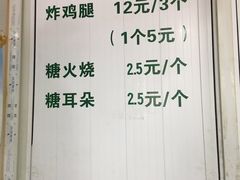 炸鸡腿 12元/3个
（1个5元）
糖火烧 2.5元/个
糖耳朵 2.5元/个